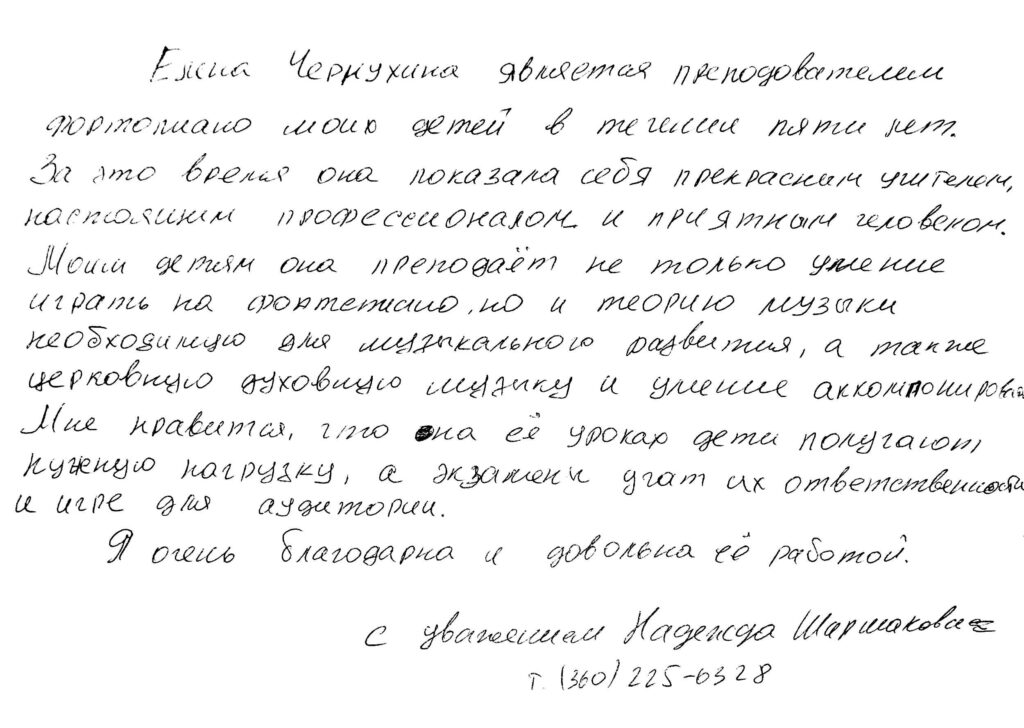 Елена Чернухина является преподователем
фортопиано моих детей в течении пяти лет.
За это время она показала себя прекрасным учителем,
настоящим профессионалом и приятным человеком.
Моим детям она преподаёт не только умение
играть на фортепиано, но и теорию музыки
необходимую для музыкального развития, а также
церковную духовную музыку и умение аккомпонировать
Мне нравится, что на её уроках дети получают
нужную нагрузку, а экзамены учат их ответственности
и игре для аудитории.
Я очень благодарна и довольна её работой.
С уважением Надежда
т. (360) 225-6328